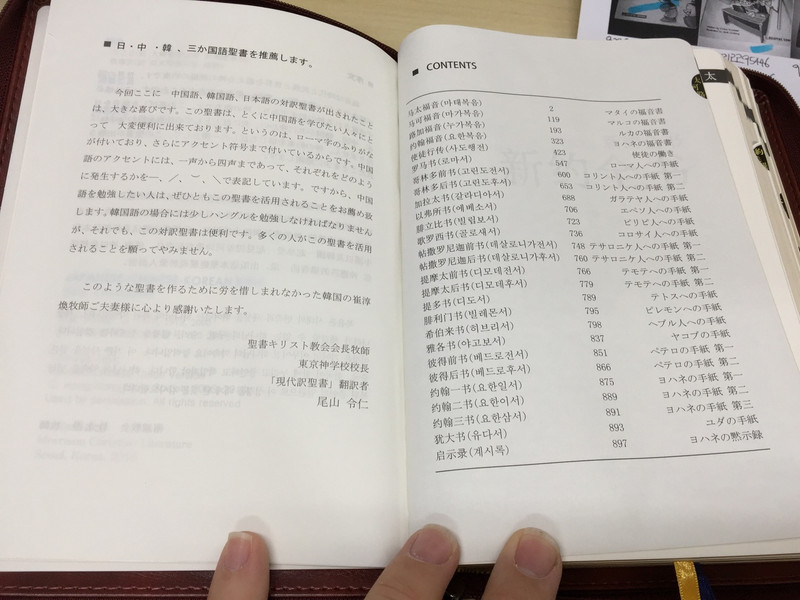 ■ 日・中・韓、三か国語聖書を推薦します。
今回ここに 中国語、韓国語、日本語の対訳聖書が出されたこと
は、大きな喜びです。この聖書は、とくに中国語を学びたい人々にと
って 大変便利に出来ております。というのは、ローマ字のふりがな
が付いており、さらにアクセント符号まで付いているからです。中国
語のアクセントには、一声から四声まであって、それぞれをどのよう
に発生するかを―、／、﹀、＼で表記しています。ですから、中国
語を勉強したい人は、ぜひともこの聖書を活用されることをお薦め致
します。韓国語の場合には少しハングルを勉強しなければなりません
が、それでも、この対訳聖書は便利です。多くの人がこの聖書を活用
されることを願ってやみません。
このような聖書を作るために労を惜しまれなかった韓国の崔淳
煥牧師ご夫妻様に心より感謝いたします。
聖書キリスト教会会長牧師
東京神学校校長
「現代訳聖書」翻訳者
尾山 令仁
■ CONTENTS
马太福音(마태복음) 2 マタイの福音書
马可福音(마가복음) 119 マルコの福音書
路加福音(누가복음) 193 ルカの福音書
约翰福音(요한복음) 323 ヨハネの福音書
使徒行传(사도행전) 423 使徒の働き
罗马书(로마서) 547 ローマ人への手紙
哥林多前书(고린도전서) 600 コリント人への手紙 第一
哥林多后书(고린도후서) 653 コリント人への手紙 第二
加拉太书(갈라디아서) 688 ガラテヤ人への手紙
以弗所书(에베소서) 706 エペソ人への手紙
腓立比书(빌립보서) 723 ピリピ人への手紙
歌罗西书(골로새서) 736 コロサイ人への手紙
帖撒罗尼迦前书(데살로니가전서) 748 テサロニケ人への手紙 第一
帖撒罗尼迦后书(데살로니가후서) 760 テサロニケ人への手紙 第二
提摩太前书(디모데전서) 766 テモテへの手紙 第一
提摩太后书(디모데후서) 779 テモテへの手紙 第二
提多书(디도서) 789 テトスへの手紙
腓利门书(빌레몬서) 795 ピレモンへの手紙
希伯来书(히브리서) 798 ヘブル人への手紙
雅各书(야고보서) 837 ヤコブの手紙
彼得前书(베드로전서) 851 ペテロの手紙 第一
彼得后书(베드로후서) 866 ペテロの手紙 第二
约翰一书(요한일서) 875 ヨハネの手紙 第一
约翰二书(요한이서) 889 ヨハネの手紙 第二
约翰三书(요한삼서) 891 ヨハネの手紙 第三
犹大书(유다서) 893 ユダの手紙
启示录(계시록) 897 ヨハネの黙示録
太